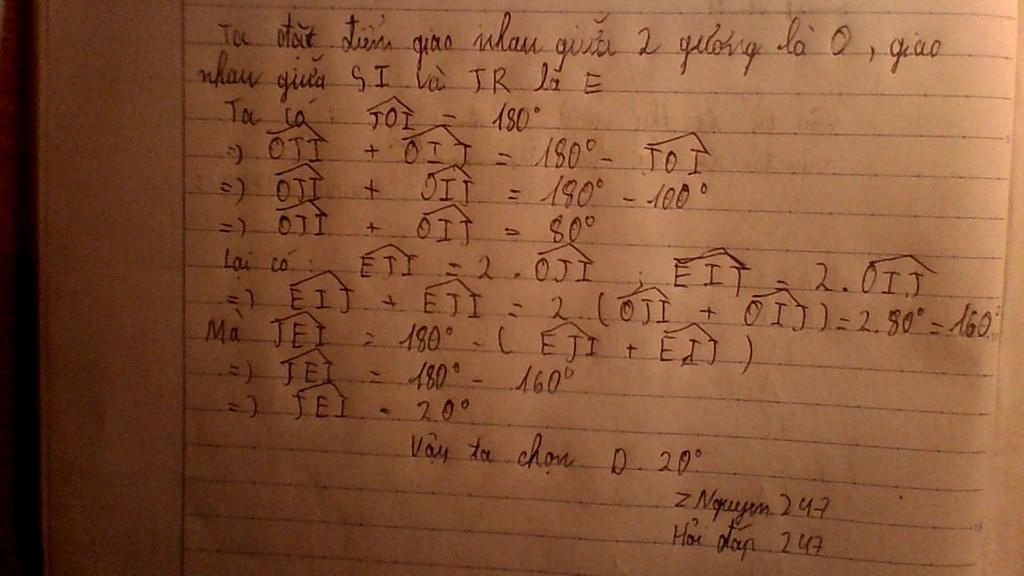 Ta đặt điểm giao nhau giữa 2 gương là O, giao
nhau giữa SI và JR là E
Ta có: JOI = 180°
=) OJI + OIJ = 180° - JOI
=) OJI + OIJ = 180° - 100°
=) OJI + OIJ = 80°
Lại có: EJI = 2. OJI ; EIJ = 2. OIJ
=) EIJ + EJI = 2. (OJI + OIJ) = 2.80° = 160°
Mà JEI = 180° - ( EJI + EIJ )
=) JEI = 180° - 160°
=) JEI = 20°
Vậy ta chọn D. 20°
ZNguyen 247
Hỏi đáp 247